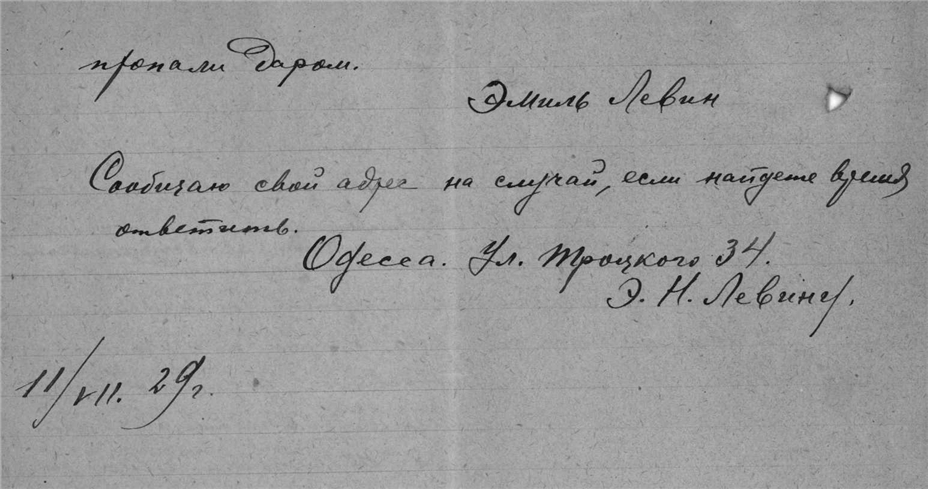 пропали даром.
Эмиль Левин
Сообщаю свой адрес на случай, если найдете время
ответить.
Одесса. Ул. Троцкого 34.
Э. Н. Левину.
11/VII. 29г.